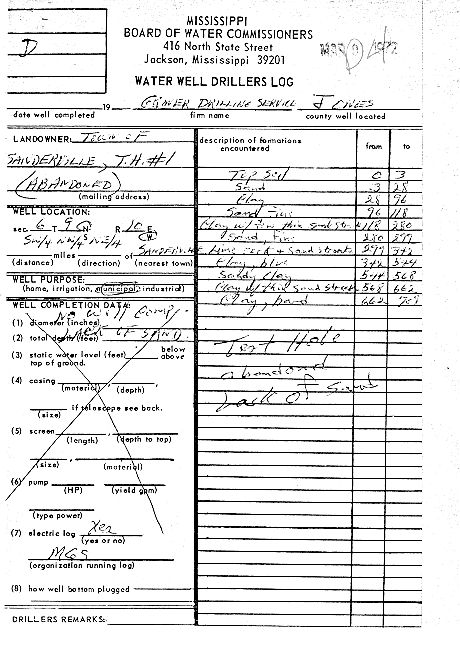 MISSISSIPPI
BOARD OF WATER COMMISSIONERS
416 North State Street
Jackson, Mississippi 39201
D
MAR 9 1972
WATER WELL DRILLERS LOG
19 GRINER DRILLING SERVICE JONES
date well completed firm name county well located
LANDOWNER: TOWN OF
SANDERVILLE, T.H. #1
(ABANDONED)
(mailing address)
WELL LOCATION:
sec 6 T 9 N R 10 E W
SW/4 NW/4 NE/4
miles of SANDERVILLE
(distance) (direction) (nearest town)
WELL PURPOSE:
(home, irrigation, municipal, industrial)
WELL COMPLETION DATA:
NO WELL COMP.
(1) diameter (inches)
LACK OF SAND.
(2) total depth (feet)
(3) static water level (feet) below above
top of ground.
(4) casing
(material) (depth)
(size) if telescope see back.
(5) screen
(length) (depth to top)
(size) (material)
(6) pump
(HP) (yield gpm)
(type power)
(7) electric log Yes
(yes or no)
MGS
(organization running log)
(8) how well bottom plugged
DRILLERS REMARKS:
description of formations encountered from to
Top Soil 0 3
Sand 3 28
Clay 28 96
Sand Fine 96 118
Clay w/ thin sand 118 280
Sand, Fine 280 297
Lime rock & Sand streaks 297 342
Clay, blue 342 544
Sandy Clay 544 568
Clay w/ thin sand streaks 568 662
Clay, hard 662
Test Hole
abandoned
Lack of Sand